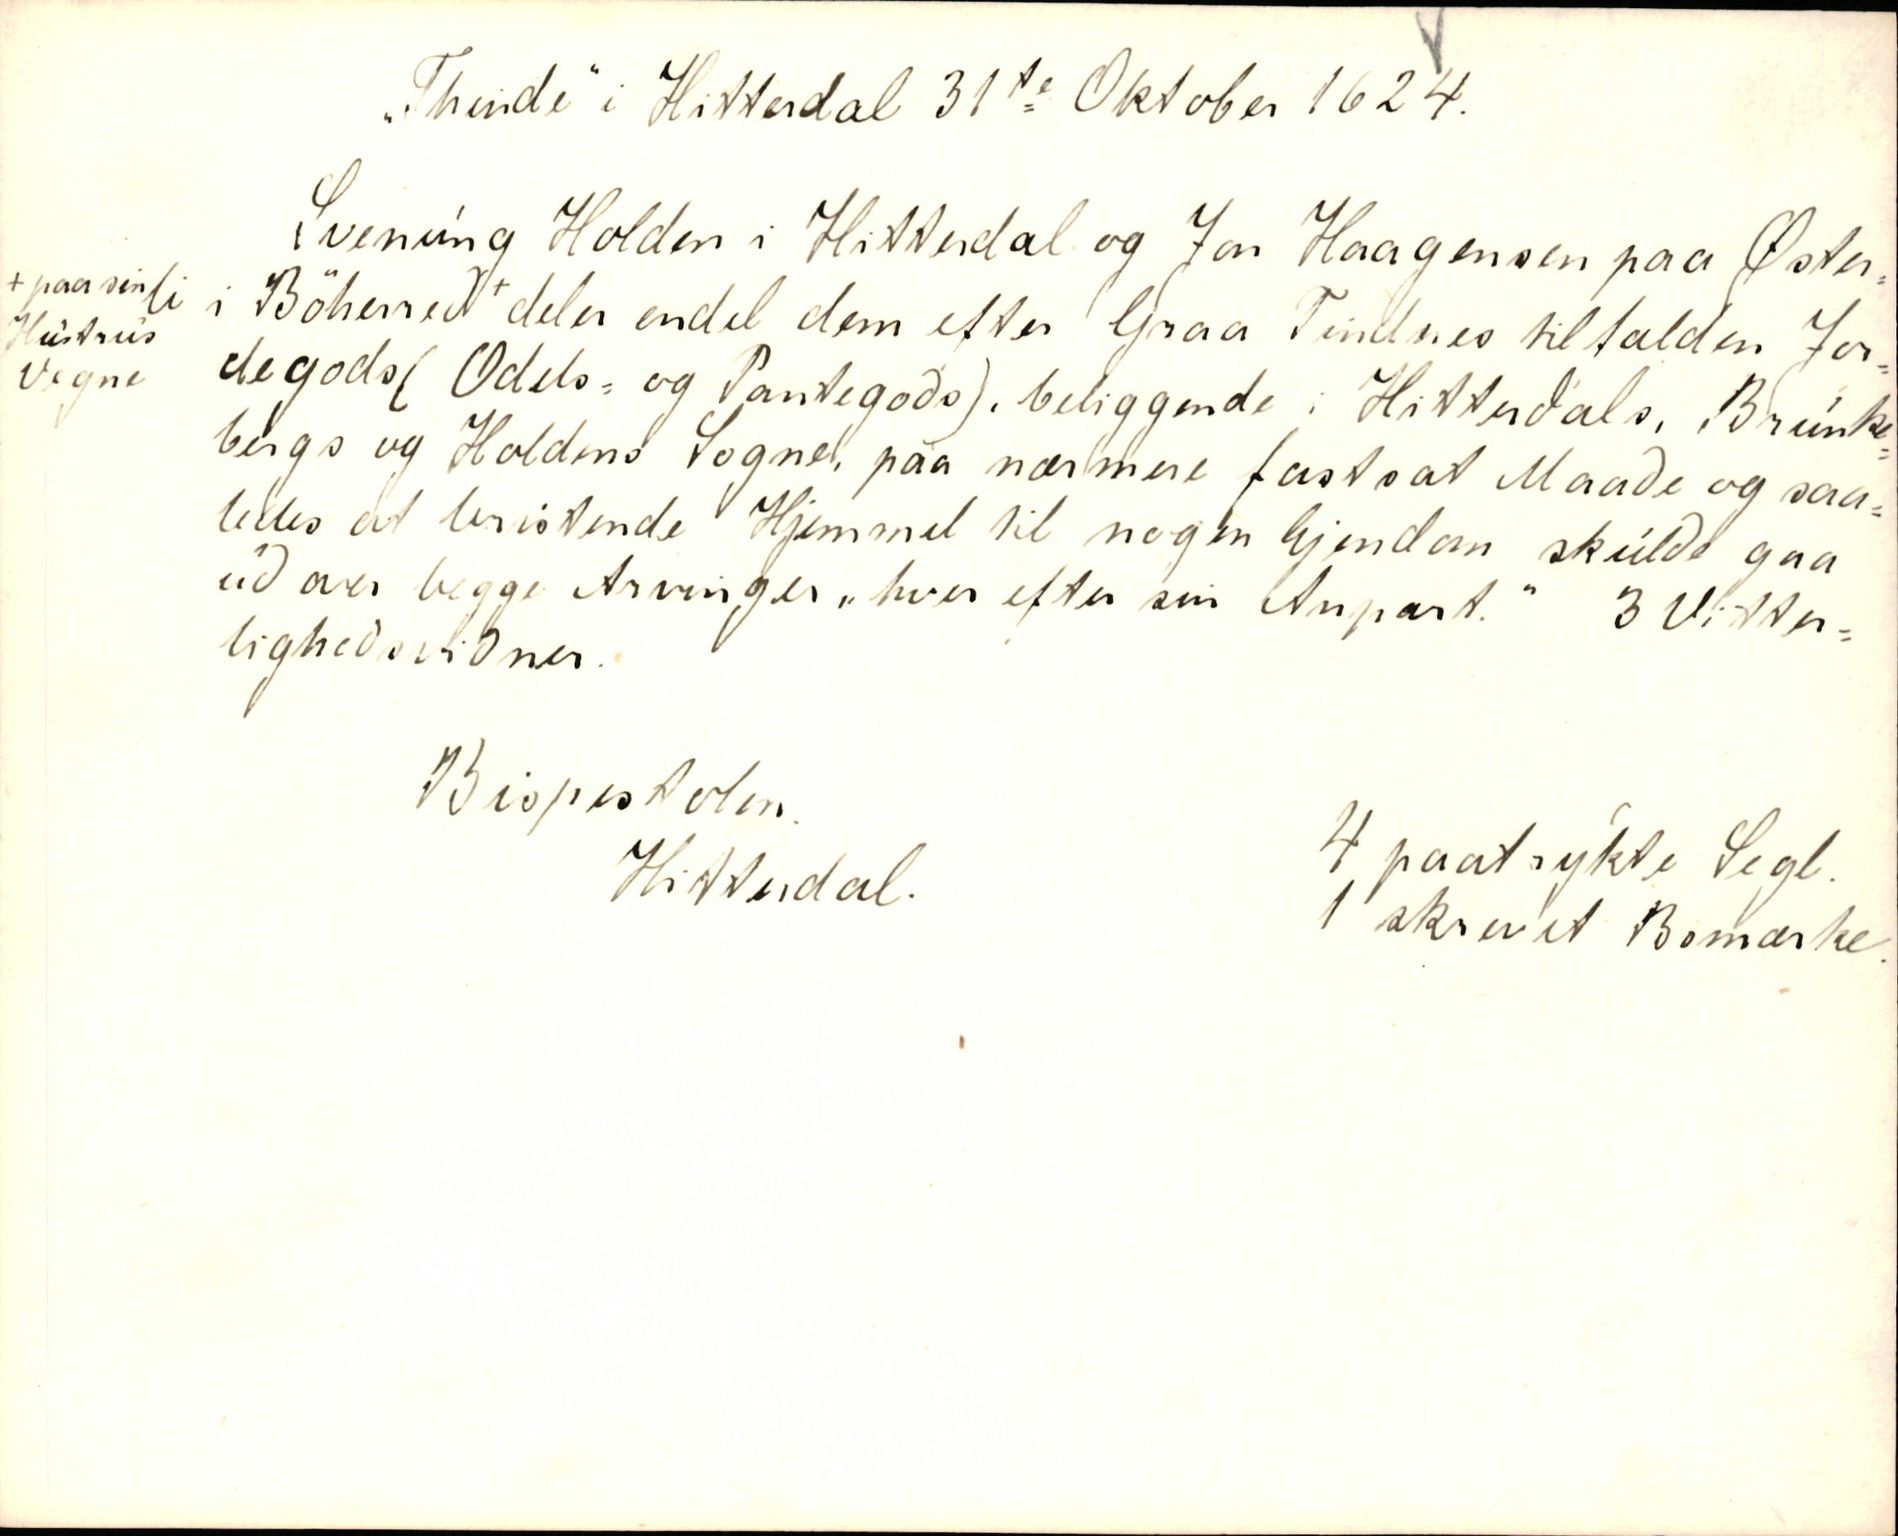 „Thinde“ i Hitterdal 31te Oktober 1624.
Svenúng Holden i Hitterdal og Jon Haagensen paa Øster=
li i Böherred + deler endel dem efter Graa Tindnes tilfalden Jor=
degods (Odels= og Pantegods), beliggende i Hitterdals, Brúnke=
bergs og Holdens Sogne, paa nærmere fastsat Maade og saa=
ledes at bristende Hjemmel til nogen Ejendom skúlde gaa
úd over begge Arvinger „hver efter sin Anpart.“ 3 Vitter=
lighedsvidner.
+ paa sin
Hústrús
Vegne
Bispestolen.
Hitterdal.
4 paatrykte Segl.
1 skrevet Bomærke.